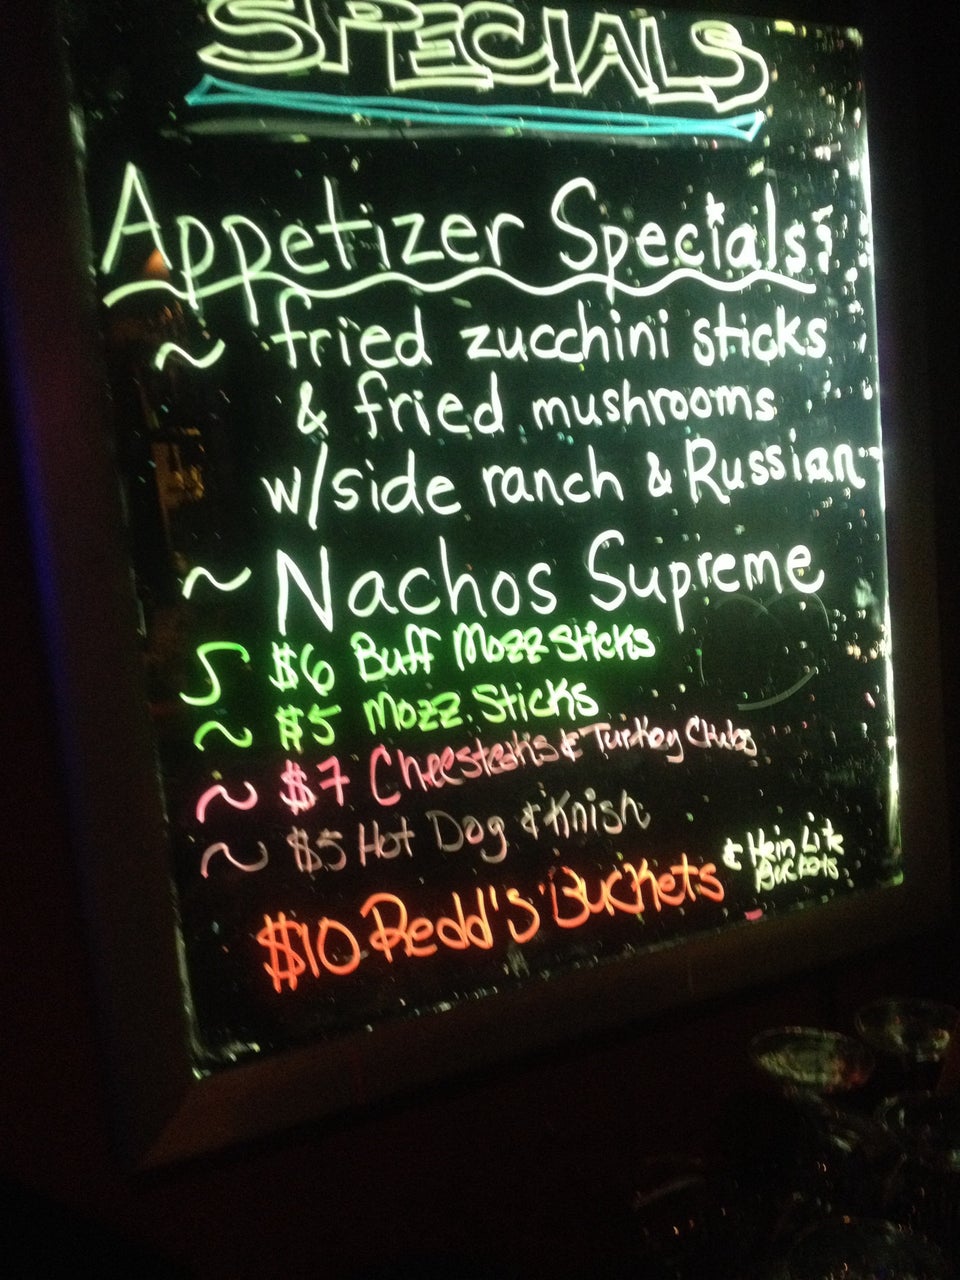 SPECIALS
Appetizer Specials:
~ fried zucchini sticks
& fried mushrooms
w/side ranch & Russian
~ Nachos Supreme
~ $6 Buff Mozz Sticks
~ $5 Mozz. Sticks
~ $7 Cheesteaks & Turkey Clubs
~ $5 Hot Dog & Knish
$10 Redd's Buckets & Hein Lite
Buckets